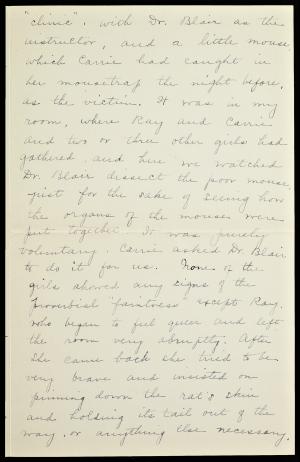 "clinic", with Dr. Blair as the
instructor, and a little mouse,
which Carrie had caught in
her mousetrap the night before,
as the victim. It was in my
room, where Ray and Carrie
and two or three other girls had
gathered and here we watched
Dr. Blair dissect the poor mouse,
just for the sake of seeing how
the organs of the mouse were
put together. It was purely
voluntary. Carrie asked Dr. Blair
to do it for us. None of the
girls showed any signs of the
proverbial "faintness" except Ray.
who began to feel queer and left
the room very abruptly. After
she came back she tried to be
very brave and insisted on
pinning down the rat's skin
and holding its tail out of the
way, or anything else necessary.